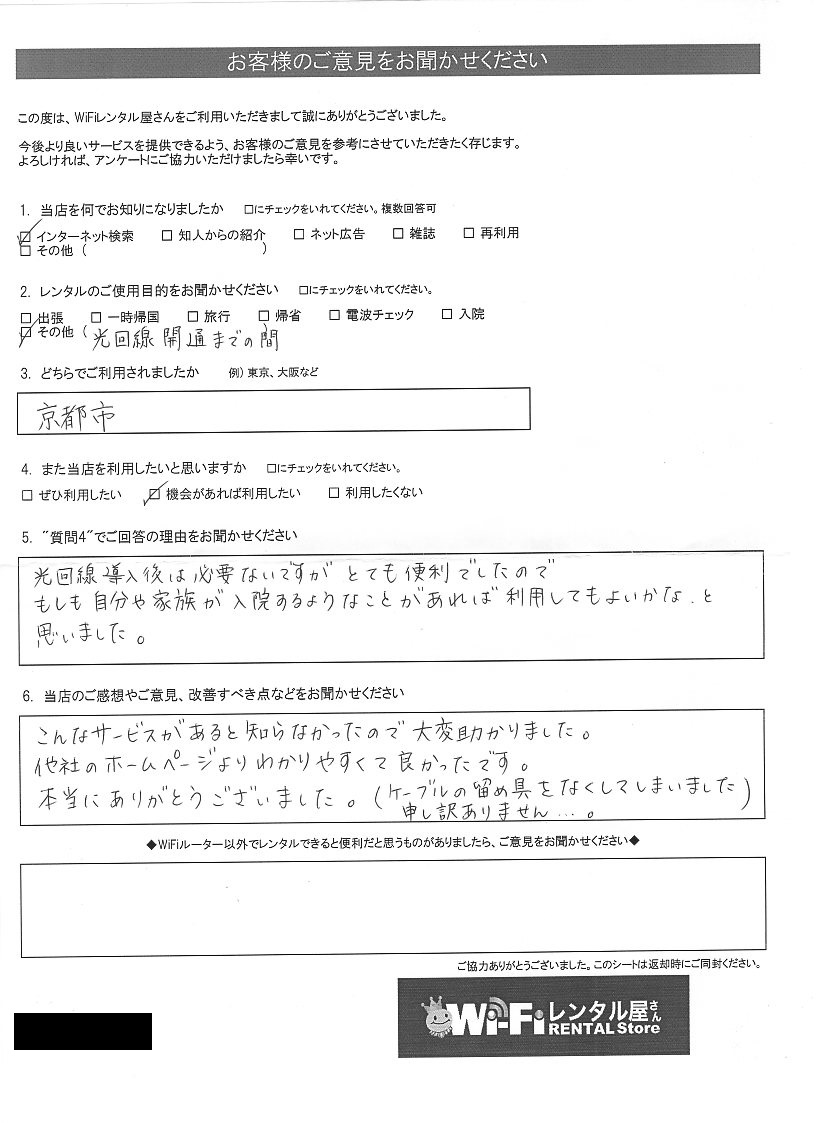 お客様のご意見をお聞かせください
この度は、WiFiレンタル屋さんをご利用いただきまして誠にありがとうございました。
今後より良いサービスを提供できるよう、お客様のご意見を参考にさせていただきたく存じます。
よろしければ、アンケートにご協力いただけましたら幸いです。
1. 当店を何でお知りになりましたか □にチェックをいれてください。複数回答可
☑ インターネット検索 □ 知人からの紹介 □ ネット広告 □ 雑誌 □ 再利用
□ その他 ( )
2. レンタルのご使用目的をお聞かせください □にチェックをいれてください。
□ 出張 □ 一時帰国 □ 旅行 □ 帰省 □ 電波チェック □ 入院
☑ その他 ( 光回線開通までの間 )
3. どちらでご利用されましたか 例）東京、大阪など
京都市
4. また当店を利用したいと思いますか □にチェックをいれてください。
□ ぜひ利用したい ☑ 機会があれば利用したい □ 利用したくない
5. "質問4"でご回答の理由をお聞かせください
光回線導入後は必要ないですがとても便利でしたので
もしも自分や家族が入院するようなことがあれば利用してもよいかな、と
思いました。
6. 当店のご感想やご意見、改善すべき点などをお聞かせください
こんなサービスがあると知らなかったので大変助かりました。
他社のホームページよりわかりやすくて良かったです。
本当にありがとうございました。(ケーブルの留め具をなくしてしまいました
申し訳ありません…。)
◆WiFiルーター以外でレンタルできると便利だと思うものがありましたら、ご意見をお聞かせください◆
ご協力ありがとうございました。このシートは返却時にご同封ください。
Wi-Fiレンタル屋さん
RENTAL Store